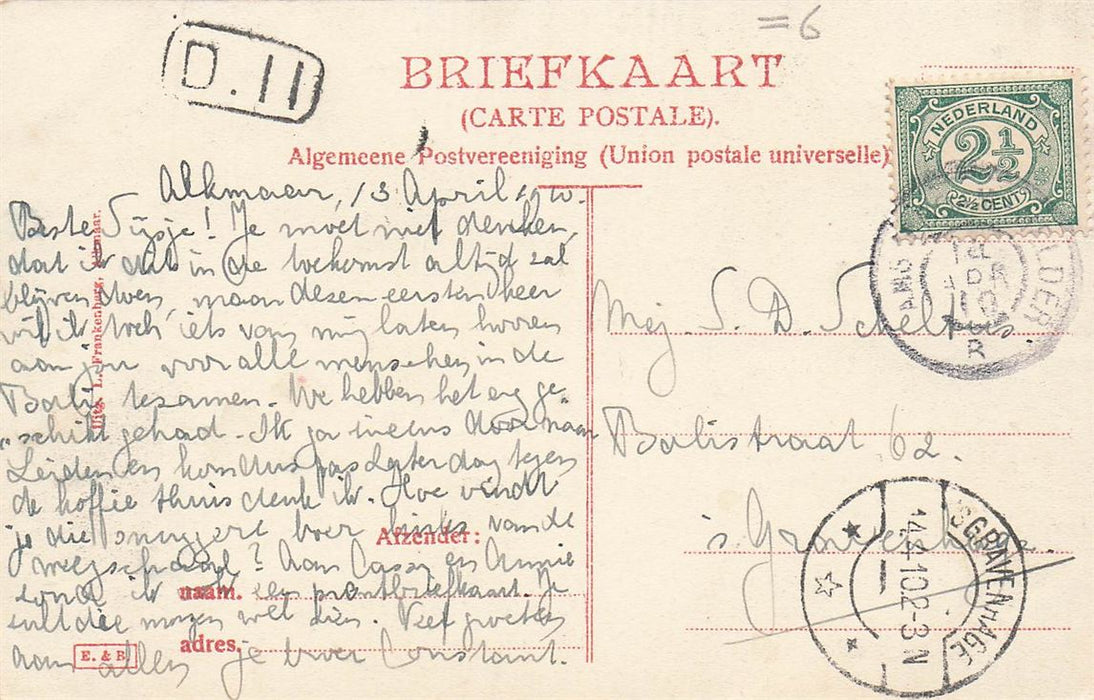 =6
D.II
BRIEFKAART
(CARTE POSTALE).
Algemeene Postvereeniging (Union postale universelle)
NEDERLAND
2½
2½ CENT
Alkmaar, 13 April 1910.
Beste Sijsje! Je moet niet denken,
dat ik dit in de toekomst altijd zal
blijven doen, maar dezen eersten keer
wil ik toch iets van mij laten hooren
aan jou voor alle menschen in de
Bali tesamen. We hebben het erg ge-
schikt gehad. Ik ga ineens door naar
Leiden en kom dus pas Zaterdag tegen
de koffie thuis denk ik. Hoe vindt
je die van de
weegschaal? Aan Cassy en Annie
zond ik een prentbriefkaart. Je
zult die morgen wel zien. Veel groeten
aan allen je broer Constant.
Uitg. L. Frankenberg, Alkmaar.
Afzender:
naam.
adres.
E. & B.
Mej. S. D. Scheltus.
Balistraat 62.
's Gravenhage.
14 APR 10
B
'S GRAVENHAGE
14.4.10.2-3N